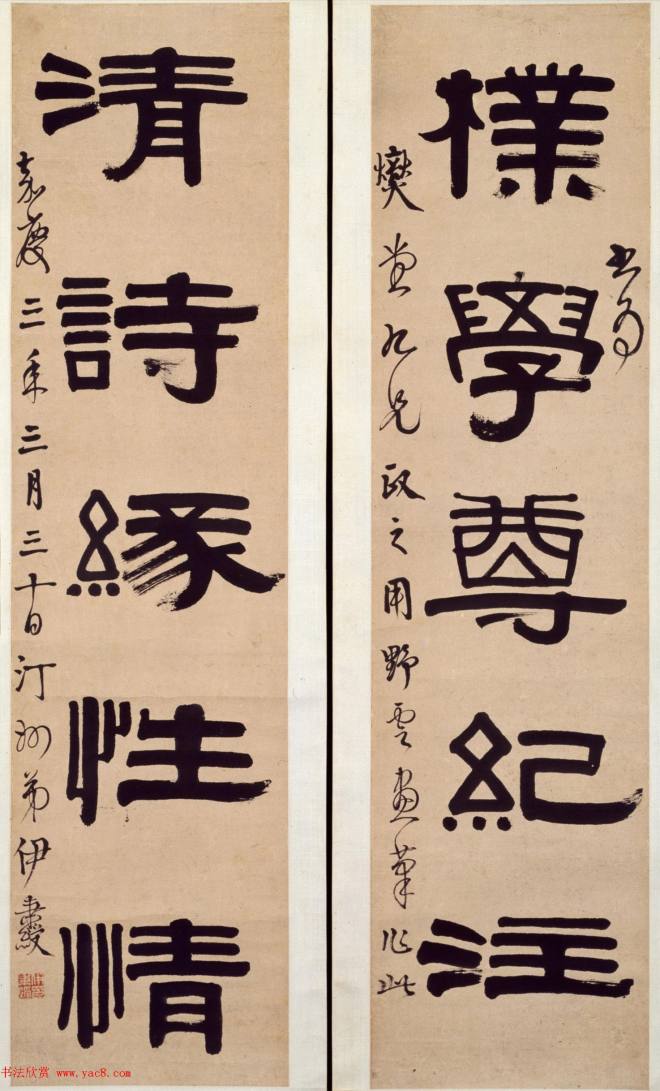 書為
樸學尊紀注
爕堂九兄政之用野雲画筆作此
清詩緣性情
嘉慶三年三月三十日汀州弟伊秉綬
书法欣赏 www.yac8.com